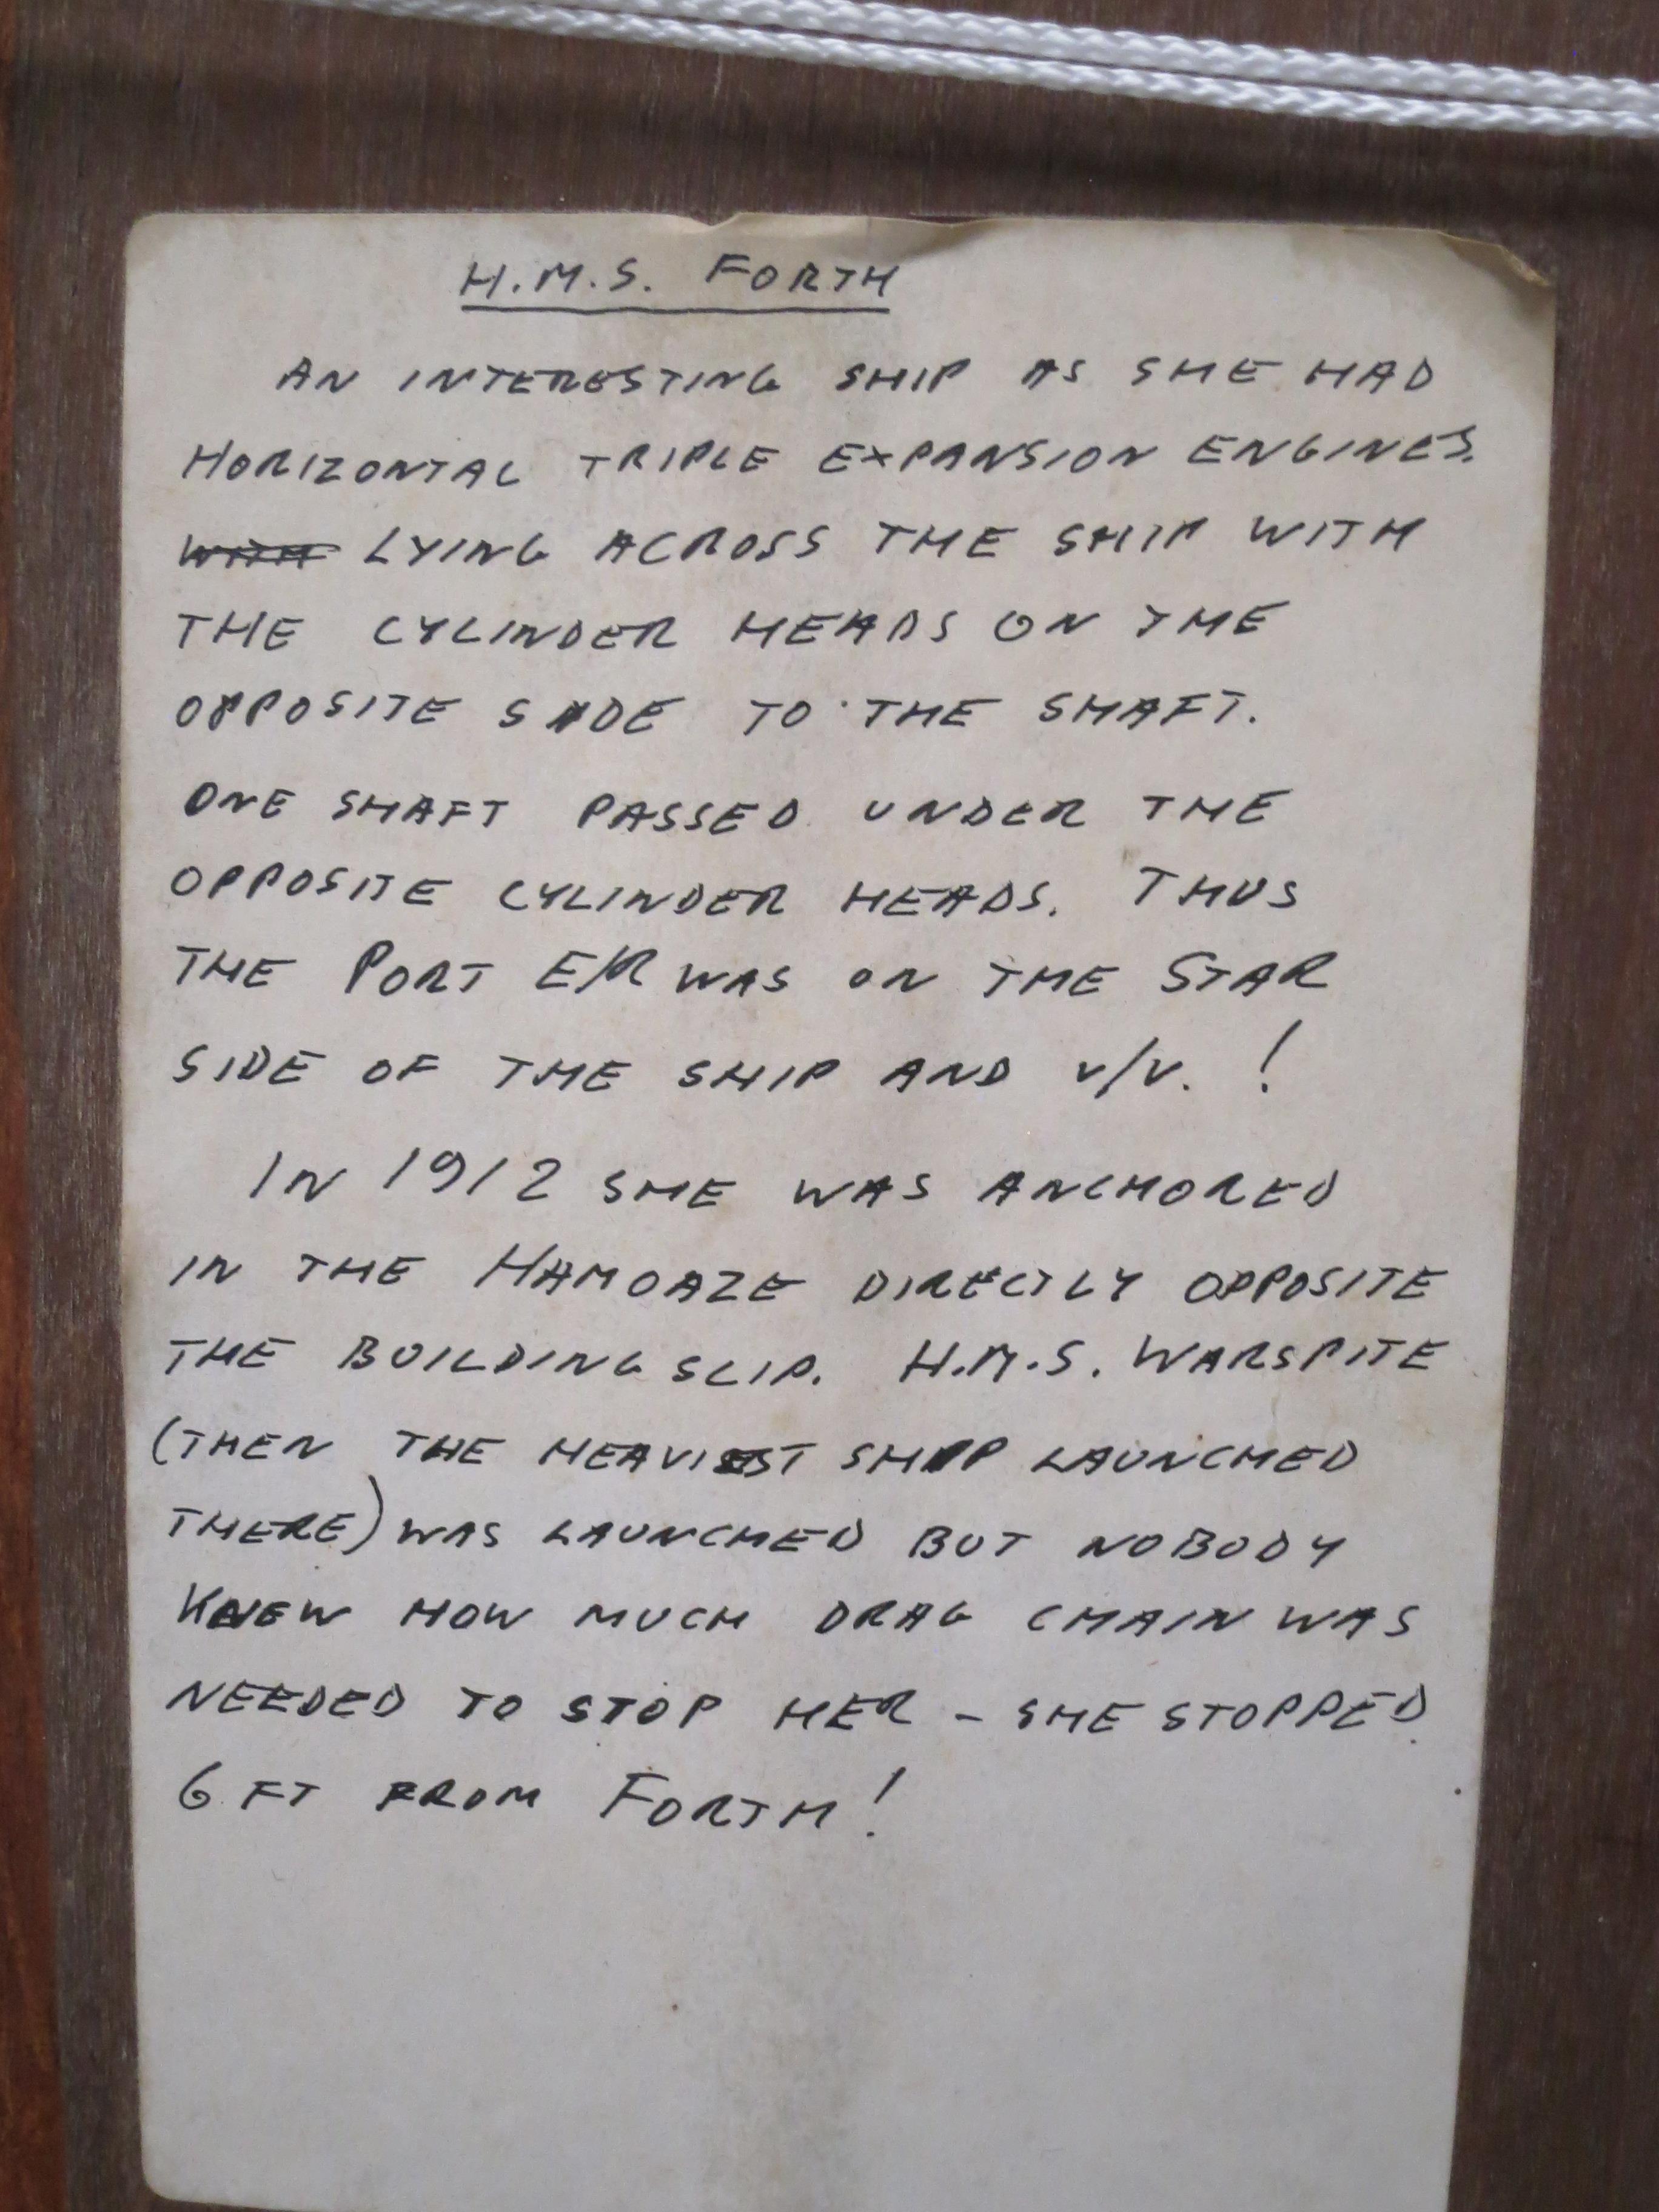 H.M.S. FORTH
AN INTERESTING SHIP AS SHE HAD
HORIZONTAL TRIPLE EXPANSION ENGINES.
WITH LYING ACROSS THE SHIP WITH
THE CYLINDER HEADS ON THE
OPPOSITE SIDE TO THE SHAFT.
ONE SHAFT PASSED UNDER THE
OPPOSITE CYLINDER HEADS. THUS
THE PORT E/R WAS ON THE STAR
SIDE OF THE SHIP AND V/V. !
IN 1912 SHE WAS ANCHORED
IN THE HAMOAZE DIRECTLY OPPOSITE
THE BUILDING SLIP. H.M.S. WARSPITE
(THEN THE HEAVIEST SHIP LAUNCHED
THERE) WAS LAUNCHED BUT NOBODY
KNEW HOW MUCH DRAG CHAIN WAS
NEEDED TO STOP HER - SHE STOPPED
6 FT FROM FORTH!